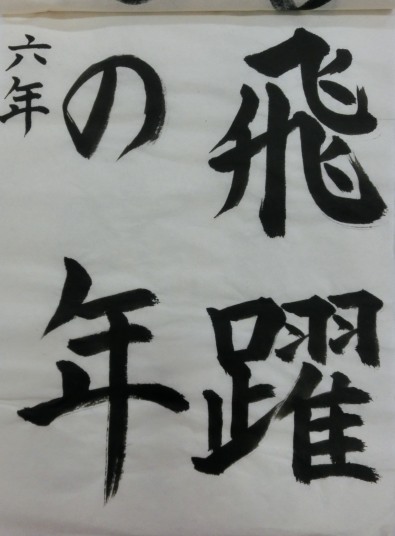 飛躍
の年
六年